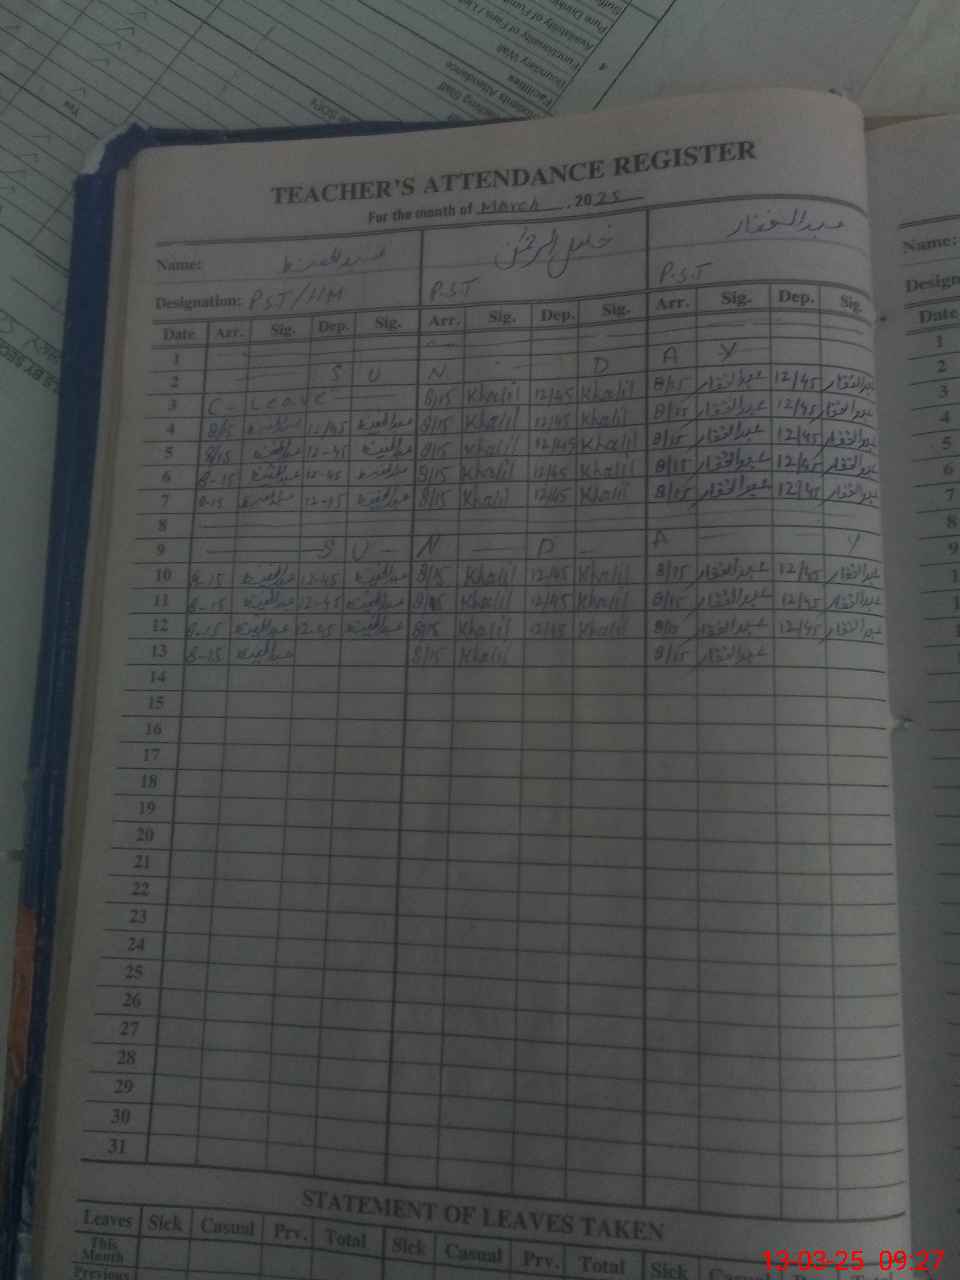 Pure Drinking
Availability of Furniture
Functionality of Fans / Lights
Boundary Wall
Facilities
Students Attendance
Teaching Staff
Yes
TEACHER'S ATTENDANCE REGISTER
For the month of March , 2025
Name: خلیل الرحمٰن عبدالغفار
Designation: P.S.T/HM P.S.T P.S.T
Date Arr. Sig. Dep. Sig. Arr. Sig. Dep. Sig. Arr. Sig. Dep. Sig.
1
2 S U N D A Y
3 C - Leave 8/15 Khalil 12/45 Khalil 8/15 عبدالغفار 12/45 عبدالغفار
4 8/15 12/45 8/15 Khalil 12/45 Khalil 8/15 عبدالغفار 12/45 عبدالغفار
5 8/15 12-45 8/15 Khalil 12/45 Khalil 8/15 عبدالغفار 12/45 عبدالغفار
6 8-15 12-45 8/15 Khalil 12/45 Khalil 8/15 عبدالغفار 12/45 عبدالغفار
7 8-15 12-45 8/15 Khalil 12/45 Khalil 8/15 عبدالغفار 12/45 عبدالغفار
8
9 S U N D A Y
10 8-15 12-45 8/15 Khalil 12/45 Khalil 8/15 عبدالغفار 12/45 عبدالغفار
11 8-15 12-45 8/15 Khalil 12/45 Khalil 8/15 عبدالغفار 12/45 عبدالغفار
12 8-15 12-45 8/15 Khalil 12/45 Khalil 8/15 عبدالغفار 12/45 عبدالغفار
13 8-15 8/15 Khalil 8/15 عبدالغفار
14
15
16
17
18
19
20
21
22
23
24
25
26
27
28
29
30
31
STATEMENT OF LEAVES TAKEN
Leaves Sick Casual Prv. Total Sick Casual Prv. Total Sick
This Month
Previous
Name:
Date
1
2
3
4
5
6
7
8
9
13-03-25 09:27